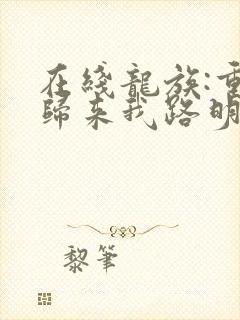 在綫龍族:重
歸來我路明
黎筆